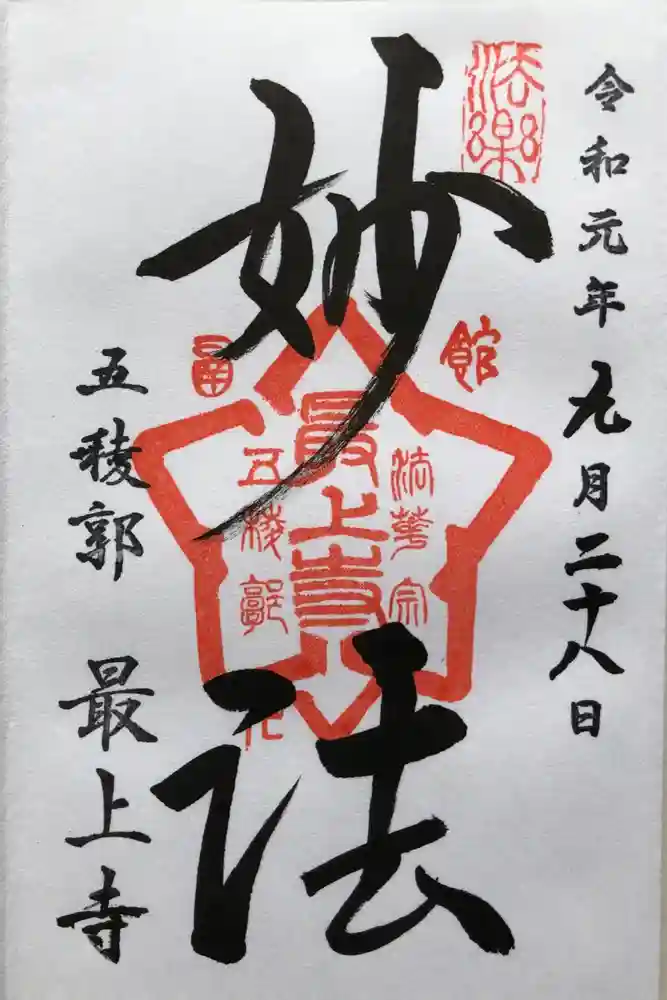 令和元年九月二十八日
法楽
妙法
館
法華宗
最上寺
五稜郭
五稜郭 最上寺